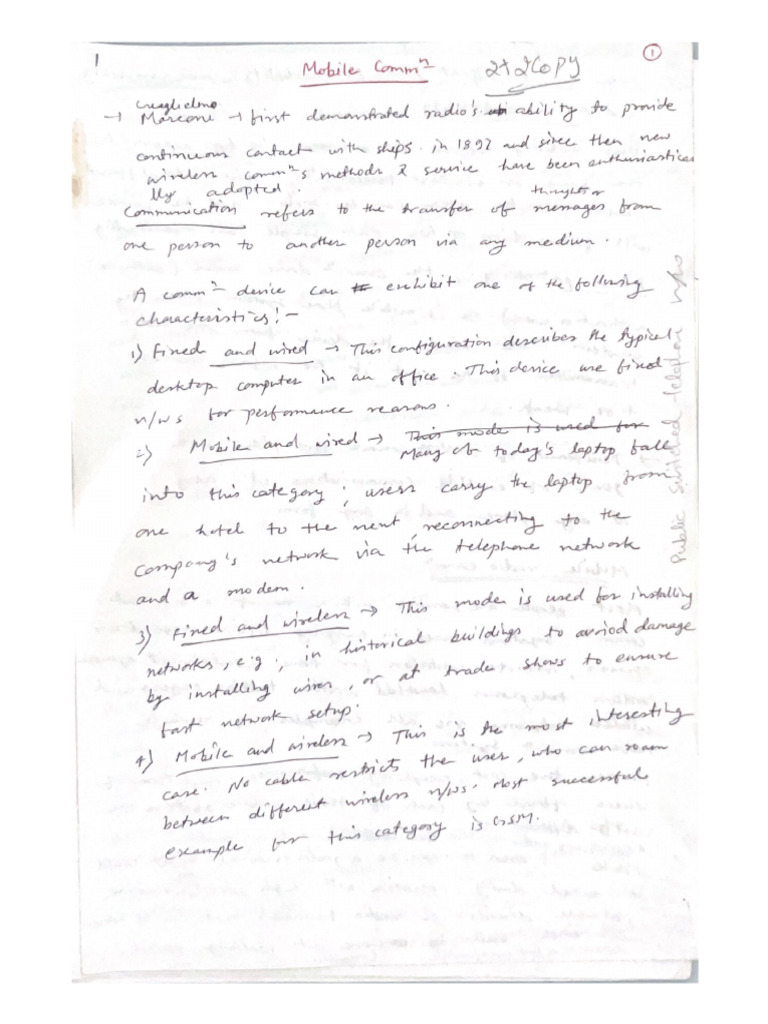 1
①
Mobile Commⁿ 2+2 Copy
Guaglielmo
→ Marconi → first demonstrated radio's ability to provide
continuous contact with ships. in 1897 and since then new
wireless commⁿ's methods & service have been enthusiastica
lly adopted. thoughts or
Communication refers to the transfer of messages from
one person to another person via any medium.
A commⁿ device can exhibit one of the following
characteristics:-
1) Fixed and wired → This configuration describes the typical
desktop computer in an office. This device use fixed
n/ws for performance reasons.
2) Mobile and wired → This mode is used for
Many of today's laptop fall
into this category; users carry the laptop from
one hotel to the next, reconnecting to the
Company's network via the telephone network
and a modem.
3) Fixed and wireless → This mode is used for installing
networks, e.g., in historical buildings to aviod damage
by installing wires, or at trade shows to ensure
fast network setup.
4) Mobile and wireless → This is the most interesting
case. No cable restricts the user, who can roam
between different wireless n/ws. Most successful
example for this category is GSM.
Public Switched telephon n/w